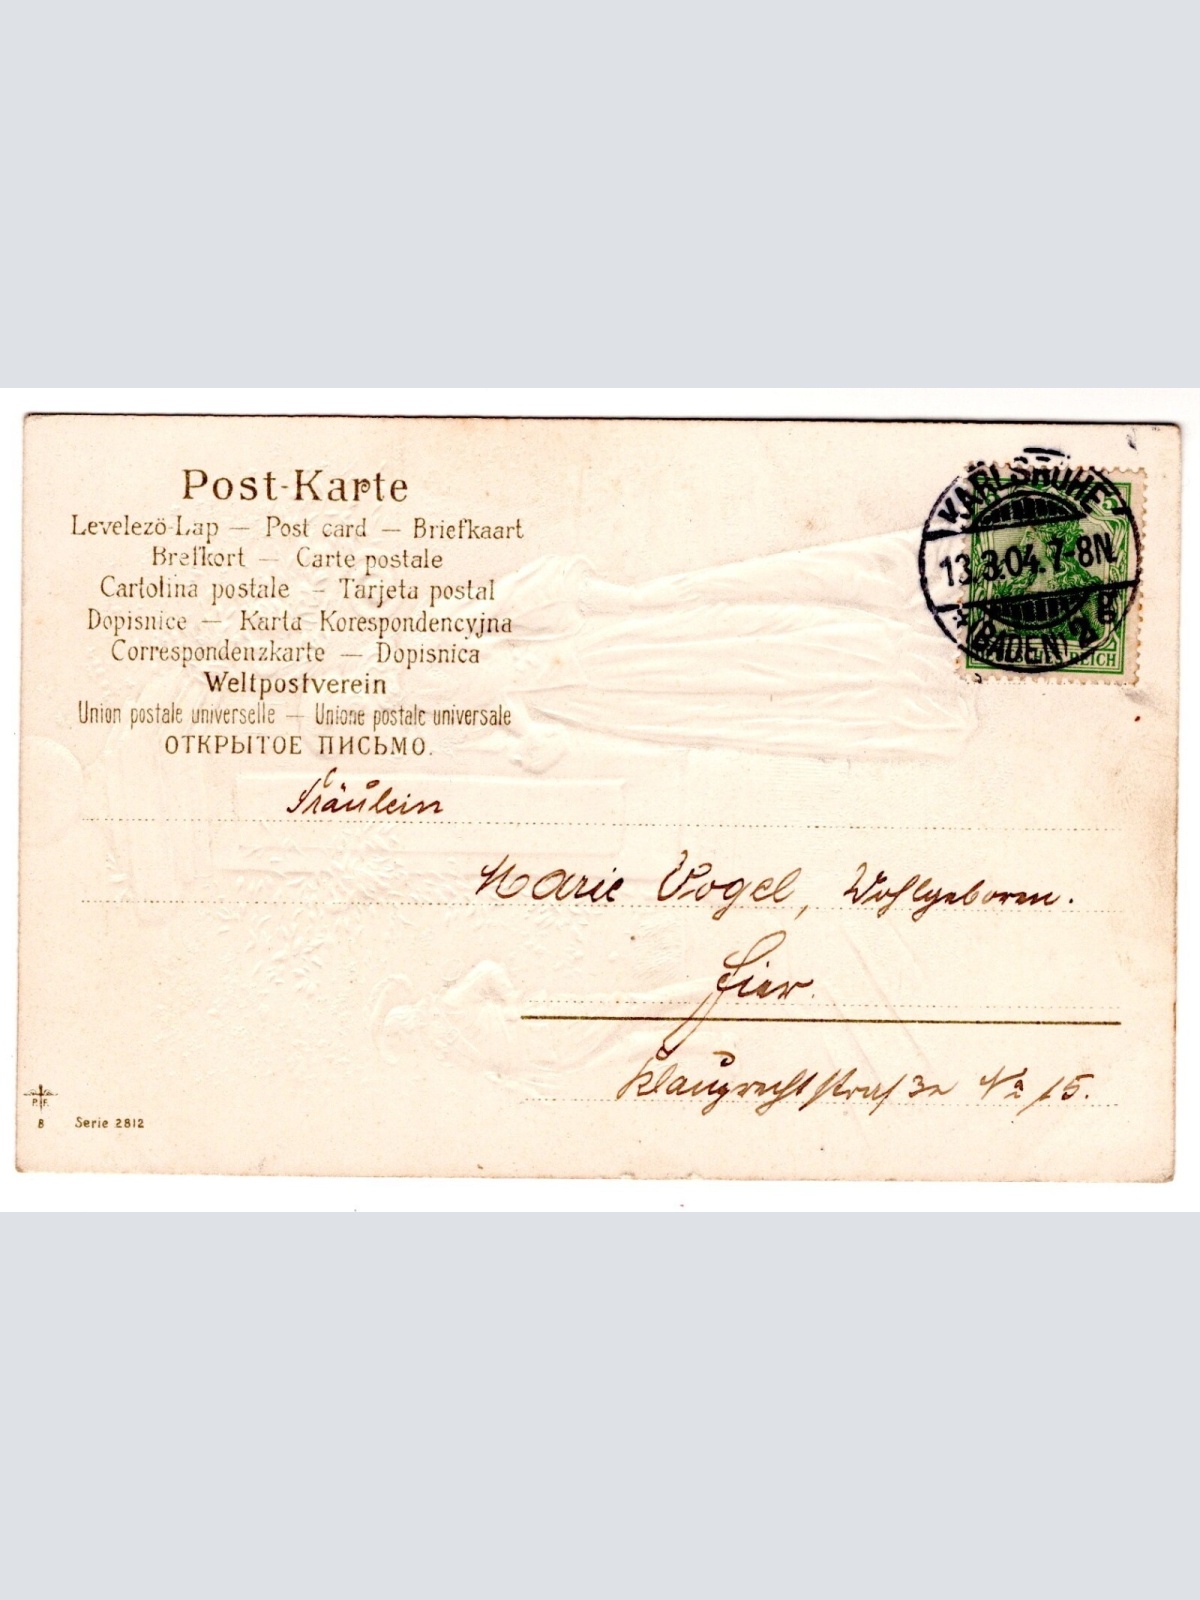 Post-Karte
Levelezö-Lap — Post card — Briefkaart
Brefkort — Carte postale
Cartolina postale — Tarjeta postal
Dopisnice — Karta Korespondencyjna
Correspondenzkarte — Dopisnica
Weltpostverein
Union postale universelle — Unione postale universale
ОТКРЫТОЕ ПИСЬМО.
KARLSRUHE
13.3.04.7-8N.
* (BADEN) 2 g
5
REICH
Fräulein
Marie Vogel, Wohlgeboren.
hier.
Klauprechtstraße No 15.
P.F.
8
Serie 2812